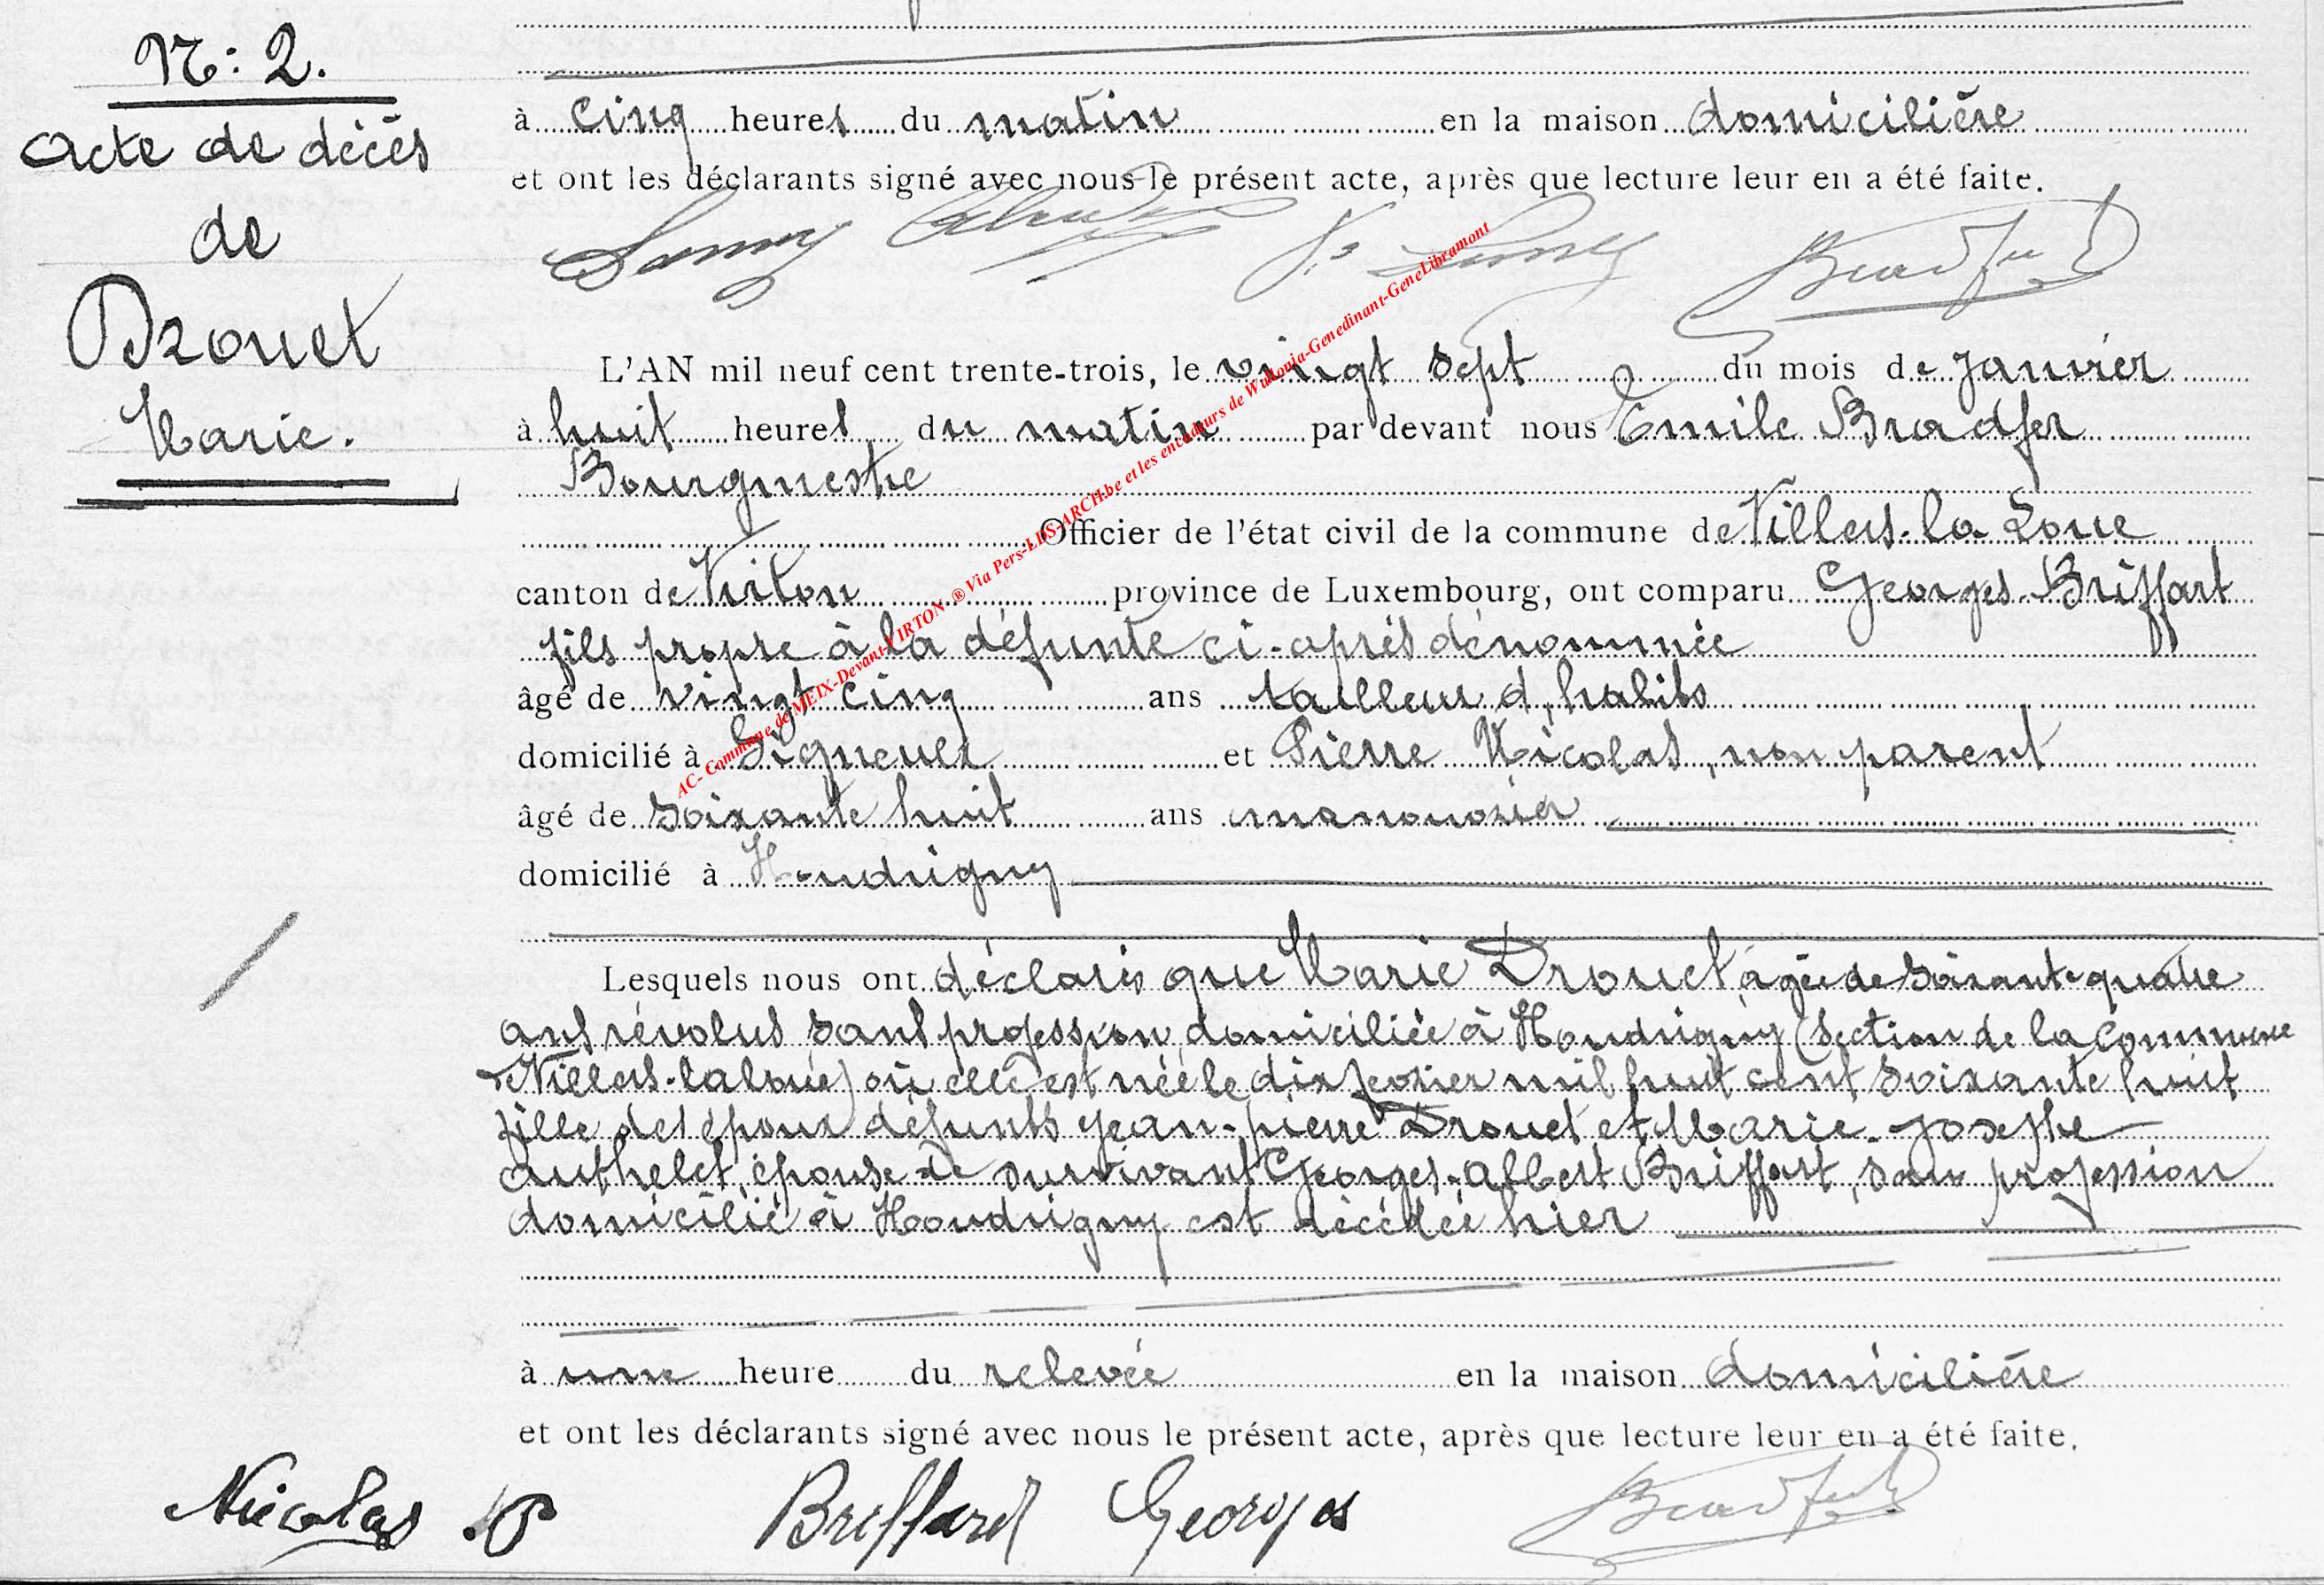 N: 2.
Acte de décès
de
Drouet
Marie.
à cinq heures du matin en la maison domicilière
et ont les déclarants signé avec nous le présent acte, après que lecture leur en a été faite.
Bradfer
L'AN mil neuf cent trente-trois, le vingt sept du mois de Janvier
à huit heures du matin par devant nous Emile Bradfer
Bourgmestre
Officier de l'état civil de la commune de Villers-la Loue
canton de Virton province de Luxembourg, ont comparu Georges Briffart
fils propre à la défunte ci-après dénommée
âgé de vingt cinq ans tailleur d'habits
domicilié à Signeulx et Pierre Nicolas, non parent
âgé de soixante huit ans manouvrier
domicilié à Houdrigny
Lesquels nous ont déclarés que Marie Drouet, agée de soixante quatre
ans révolus sans profession, domiciliée à Houdrigny (section de la Commune
de Villers-la loue) où elle est née le dix fevrier mil huit cent soixante huit
fille des époux défunts Jean-pierre Drouet et Marie-Josephe
Authelet, épouse de survivant Georges-Albert Briffart, sans profession
domicilié à Houdrigny est décédée hier
à une heure du relevée en la maison domicilière
et ont les déclarants signé avec nous le présent acte, après que lecture leur en a été faite.
Nicolas P Briffard Georges Bradfer
AC- Commune de MEIX-Devant-VIRTON ® Via Pers-LDS-ARCH.be et les encodeurs de Wallonia-Genedinant-GeneLibramont